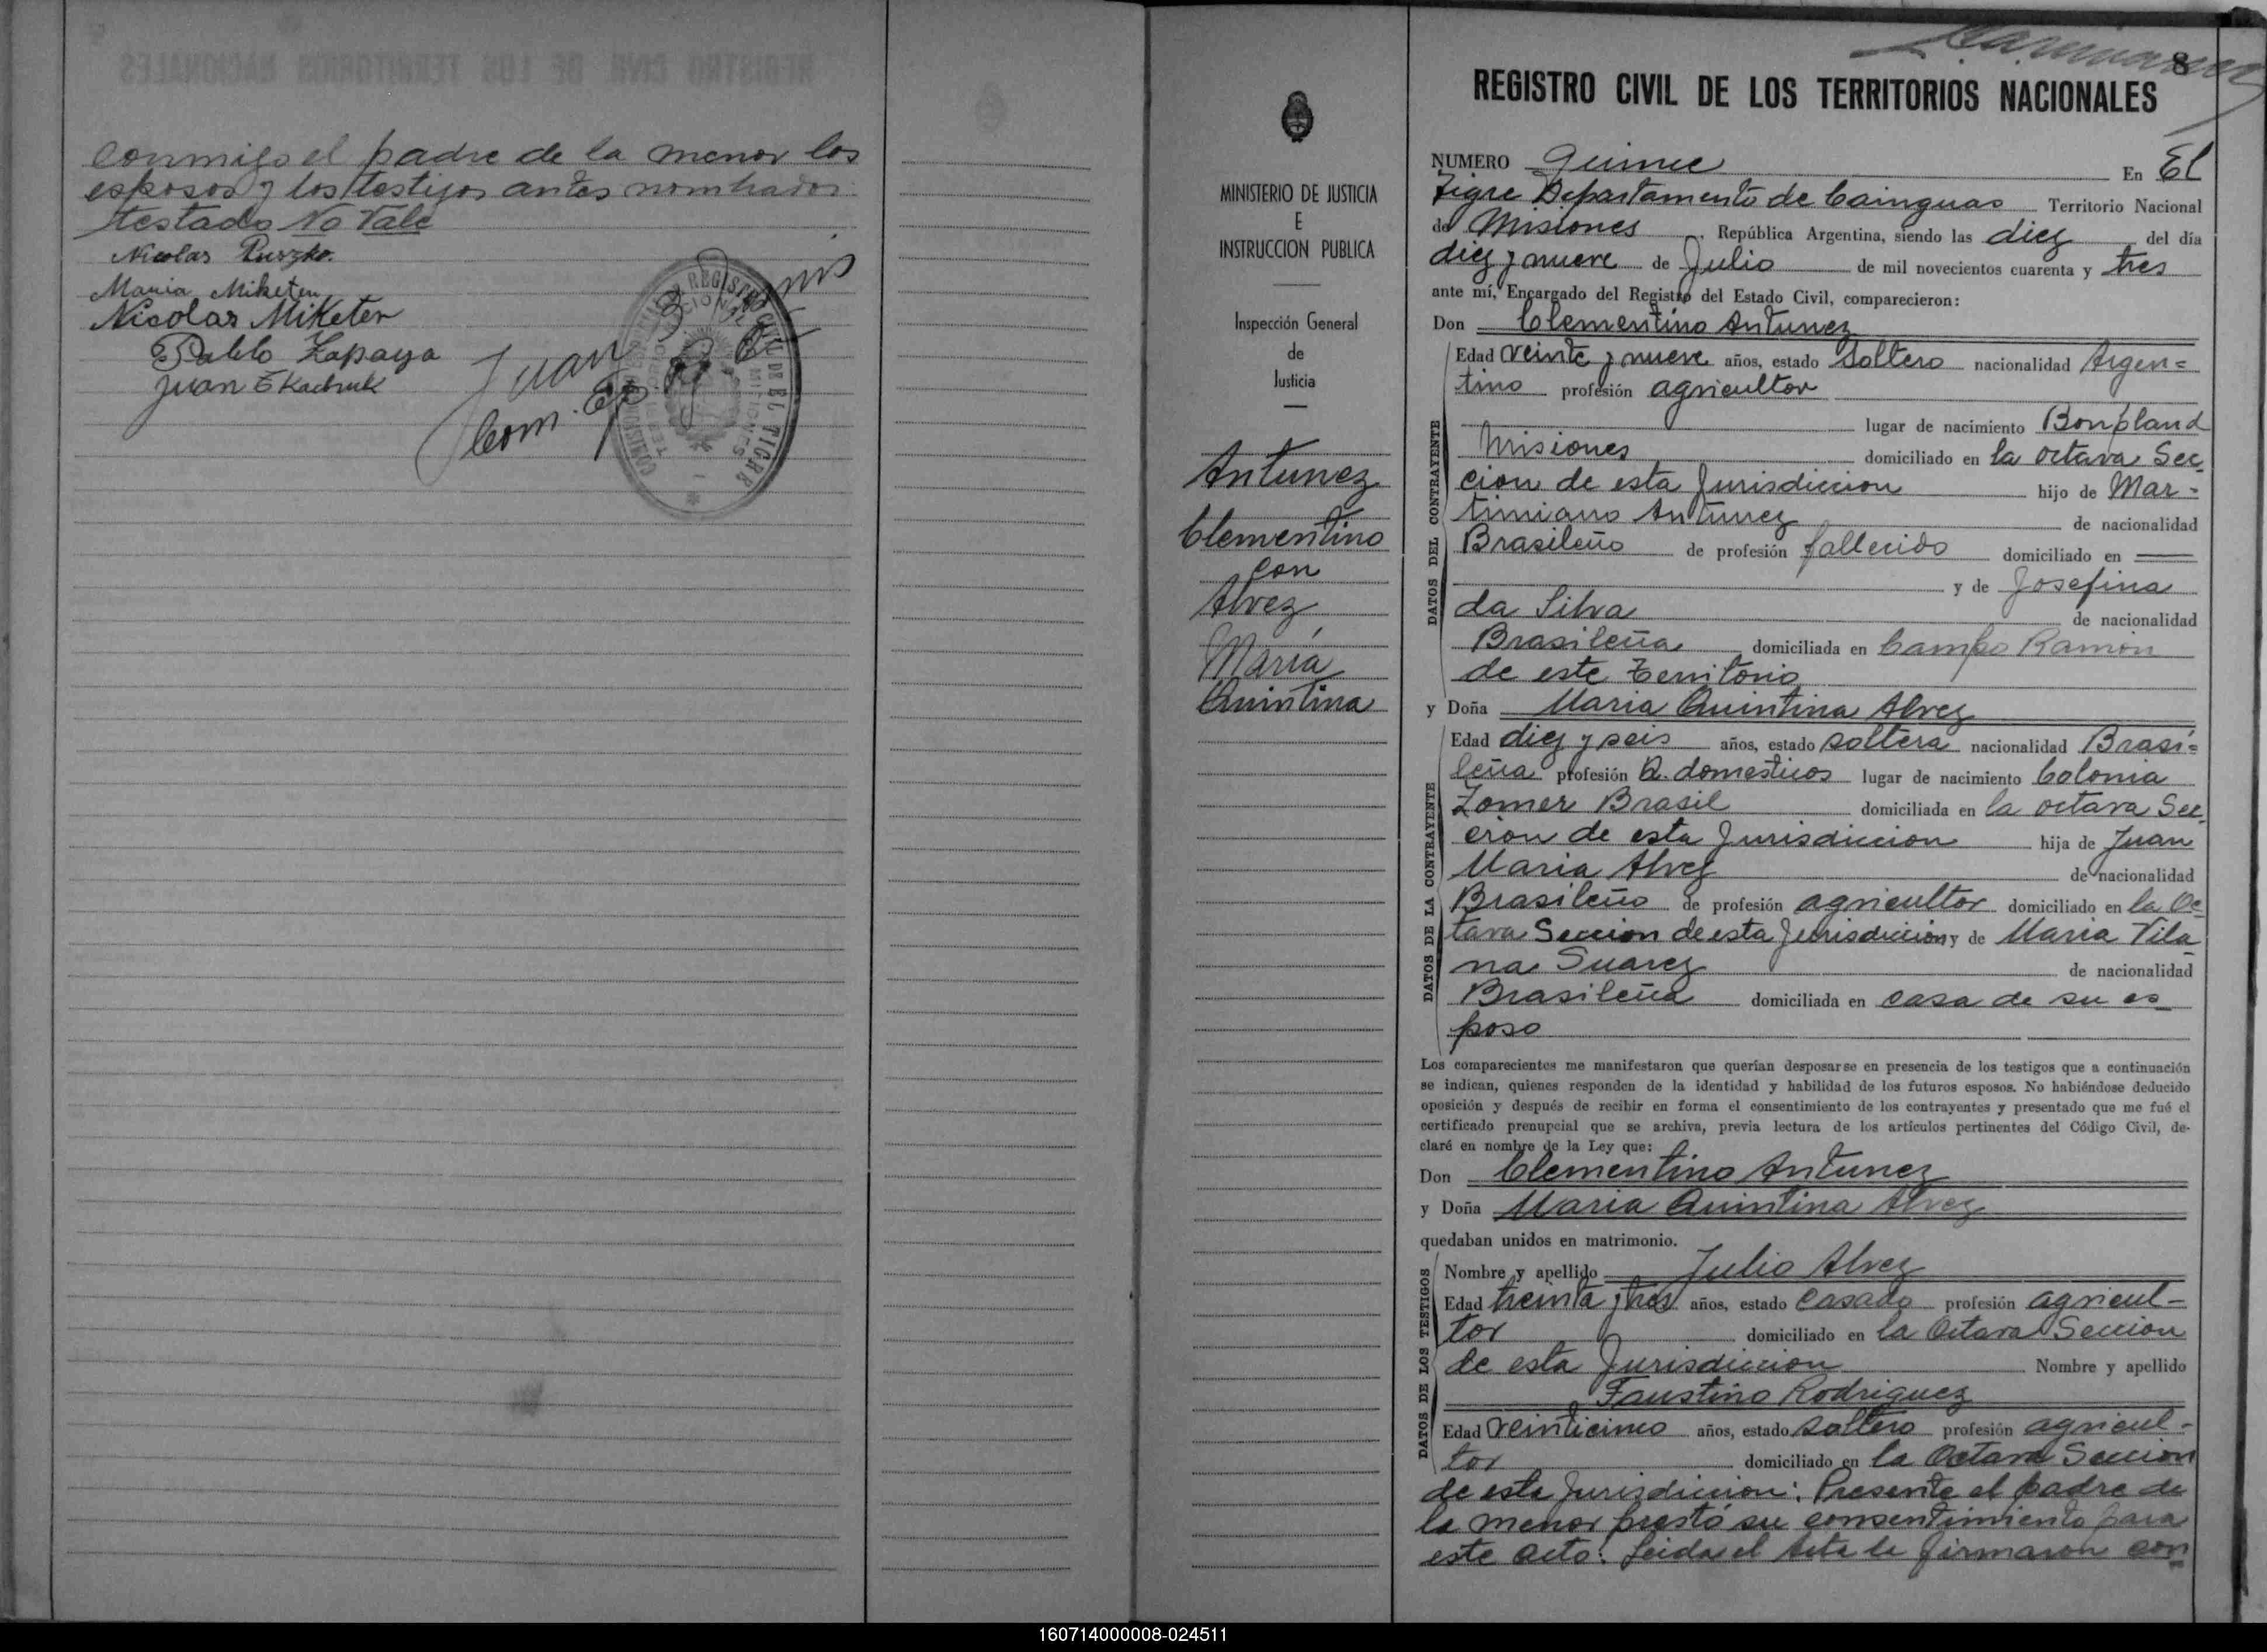 conmigo el padre de la menor los
esposos y los testigos antes nombrados:
testado No Vale
Nicolas Ruszko.
Maria Miketen
Nicolas Miketen
Pablo Zapaya
Juan
Juan
Com.
REGISTRO CIVIL DE EL TIGRE
MISIONES
MINISTERIO DE JUSTICIA
E
INSTRUCCION PUBLICA
Inspección General
de
Justicia
Antunez
Clementino
con
Alvez
María
Quintina
8
REGISTRO CIVIL DE LOS TERRITORIOS NACIONALES
NUMERO Quince En El
Tigre Departamento de Cainguas Territorio Nacional
de Misiones República Argentina, siendo las diez del día
diez y nueve de Julio de mil novecientos cuarenta y tres
ante mí, Encargado del Registro del Estado Civil, comparecieron:
Don Clementino Antunez
DATOS DEL CONTRAYENTE
Edad veinte y nueve años, estado Soltero nacionalidad Argen=
tino profesión agricultor
lugar de nacimiento Bonpland
Misiones domiciliado en la octava Sec
cion de esta Jurisdiccion hijo de Mar-
timiano Antunez de nacionalidad
Brasileño de profesión fallecido domiciliado en
y de Josefina
da Silva de nacionalidad
Brasileña domiciliada en Campo Ramón
de este Territorio
y Doña Maria Quintina Alvez
DATOS DE LA CONTRAYENTE
Edad diez y seis años, estado soltera nacionalidad Brasi=
leña profesión Q. domesticos lugar de nacimiento Colonia
Zomer Brasil domiciliada en la octava Sec
cion de esta Jurisdiccion hija de Juan
Maria Alvez de nacionalidad
Brasileño de profesión agricultor domiciliado en la Oc
tava Seccion de esta Jurisdiccion y de Maria Vila
na Suarez de nacionalidad
Brasileña domiciliada en casa de su es
poso
Los comparecientes me manifestaron que querían desposarse en presencia de los testigos que a continuación
se indican, quienes responden de la identidad y habilidad de los futuros esposos. No habiéndose deducido
oposición y después de recibir en forma el consentimiento de los contrayentes y presentado que me fué el
certificado prenupcial que se archiva, previa lectura de los artículos pertinentes del Código Civil, de-
claré en nombre de la Ley que:
Don Clementino Antunez
y Doña Maria Quintina Alvez
quedaban unidos en matrimonio.
DATOS DE LOS TESTIGOS
Nombre y apellido Julio Alvez
Edad treinta y tres años, estado Casado profesión agricul-
tor domiciliado en la Octava Seccion
de esta Jurisdiccion Nombre y apellido
Faustino Rodriguez
Edad veinticinco años, estado soltero profesión agricul-
tor domiciliado en la Octava Seccion
de esta Jurisdiccion: Presente el padre de
la menor prestó su consentimiento para
este acto. Leida el Acta la firmaron con
160714000008-024511